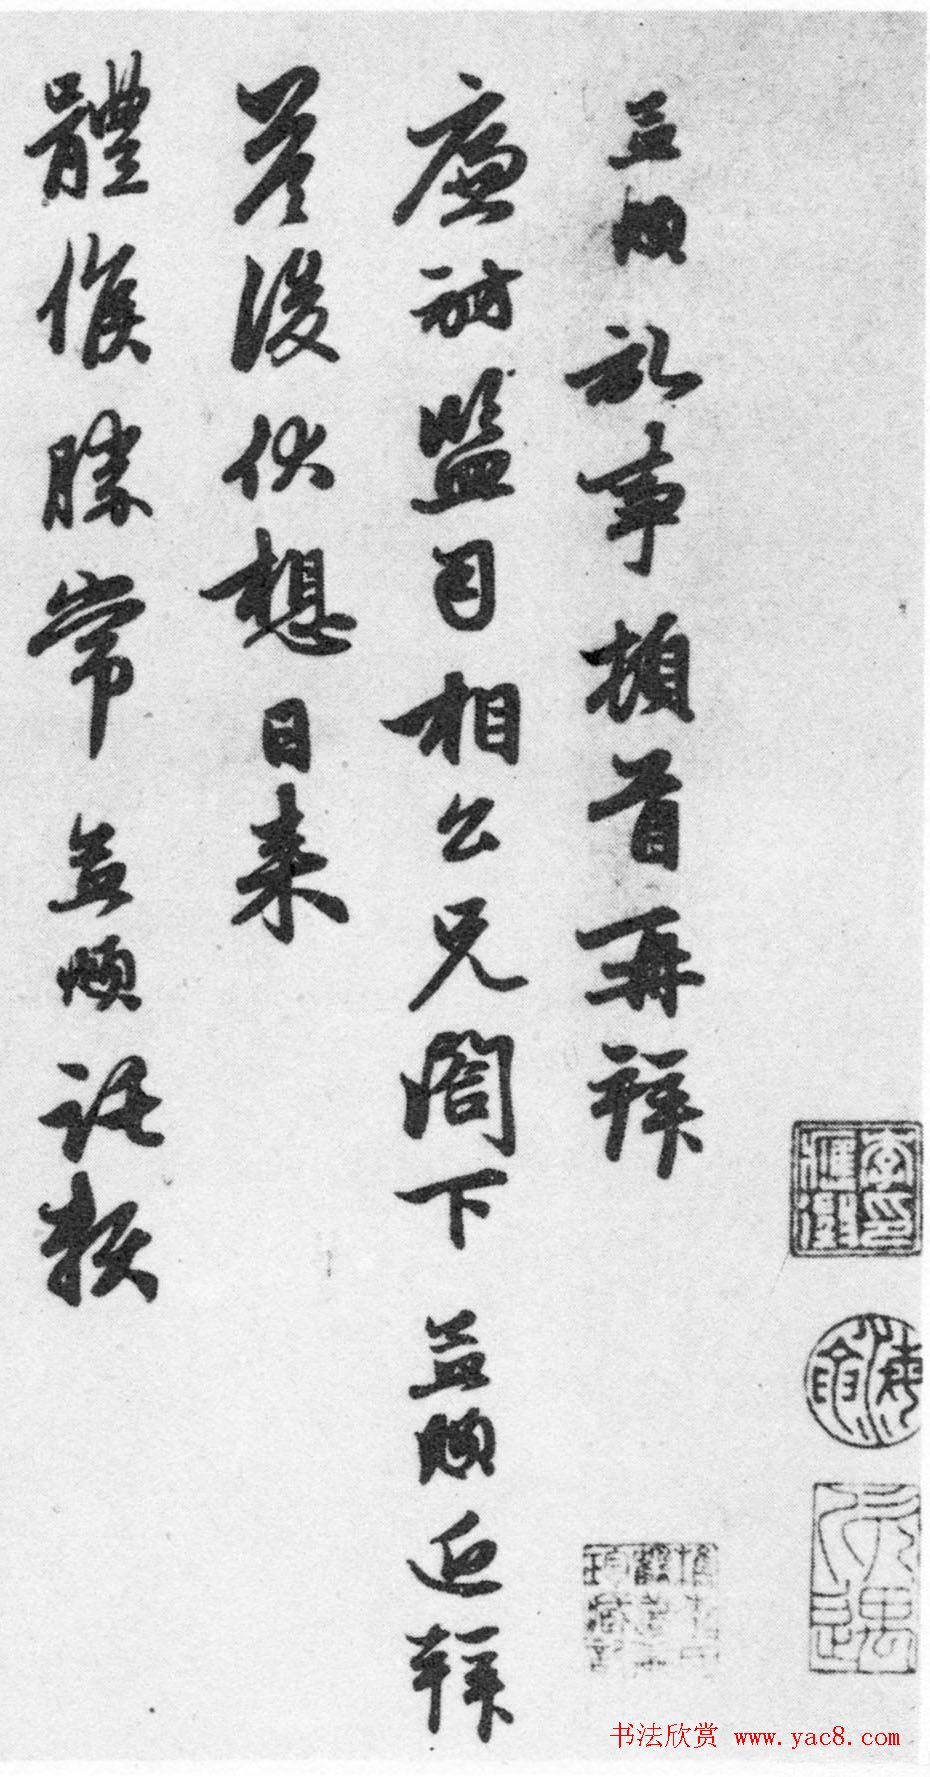 孟頫記事頓首再拜
廉訪監司相公兄閤下 孟頫近拜
荅後伏想日来
體候勝常 孟頫託
书法欣赏 www.yac8.com